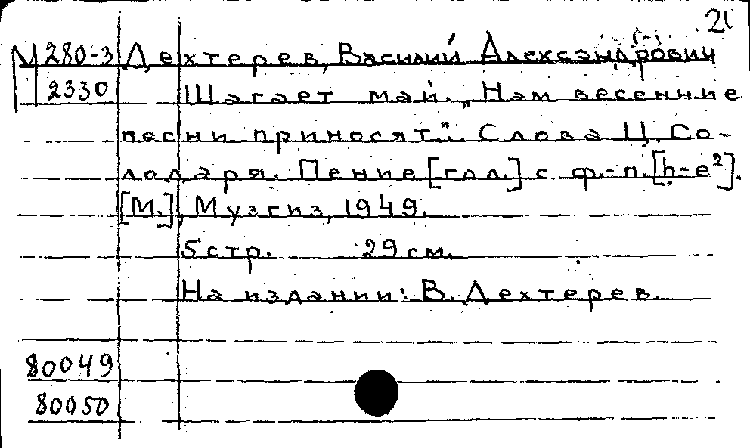 21
М 280-3 Дехтерев, Василий Александрович
2330 Шагает май. „Нам весенние
песни приносят..." Слова Ц. Со-
лодаря. Пение [гол.] с ф.-п. [h-e²].
[М.], Музгиз, 1949.
5 стр. 29 см.
На издании: В. Дехтерев.
80049
80050